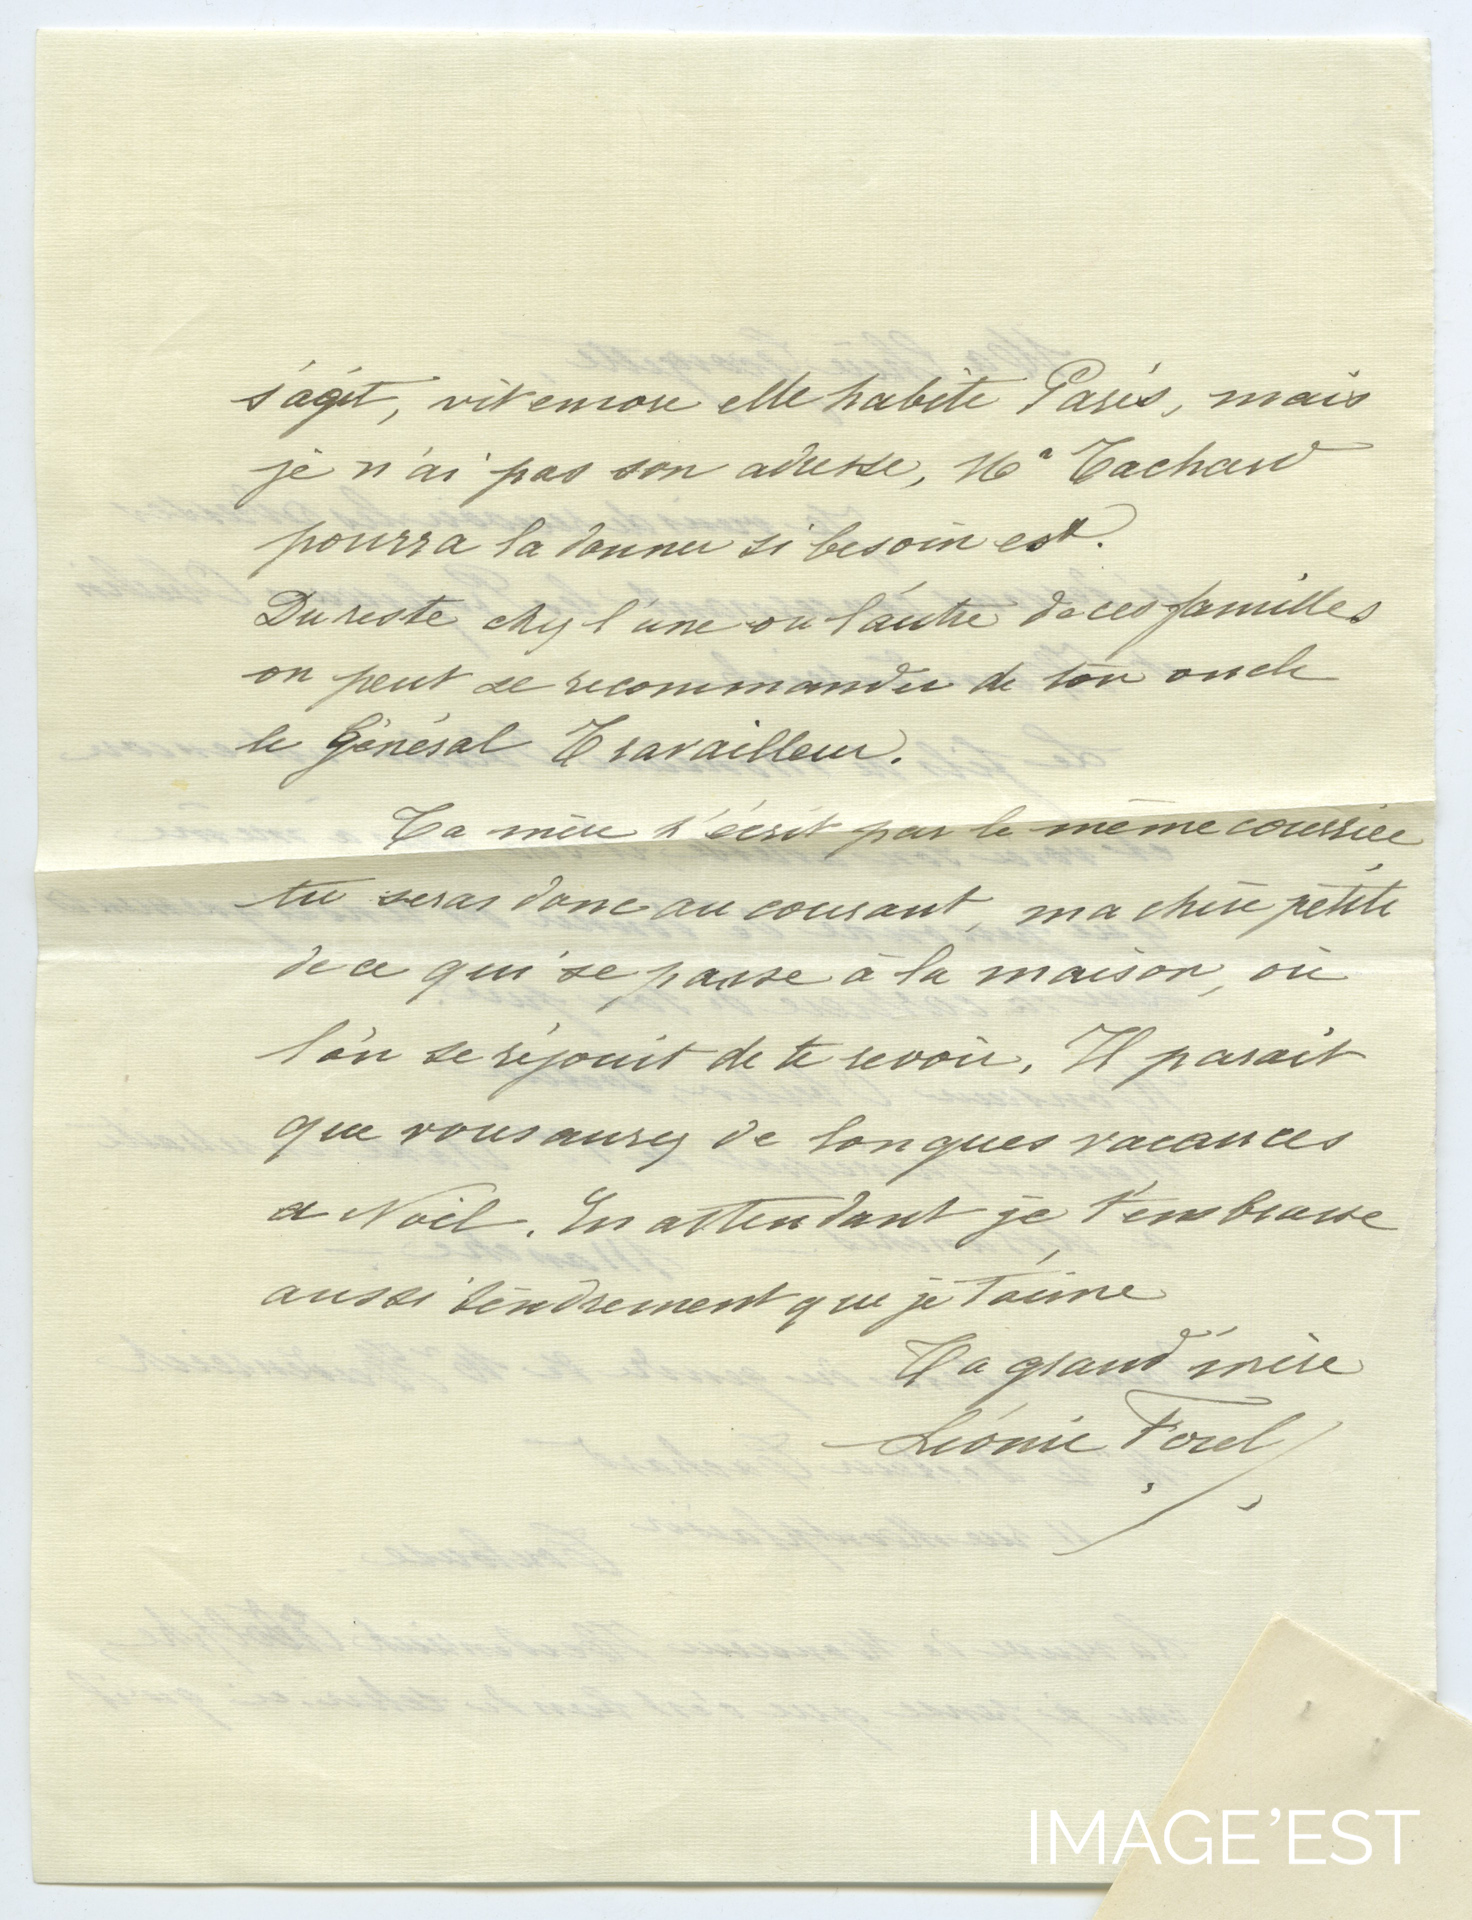 s'agit, vit encore elle habite Paris, mais
je n'ai pas son adresse, Me Tachard
pourra la donner si besoin est.
Du reste chez l'une ou l'autre de ces familles
on peut se recommander de ton oncle
le Général Travailleur.
Ta mère t'écrit par le même courrier
tu seras donc au courant, ma chère petite
de ce qui se passe à la maison, où
l'on se réjouit de te revoir. Il parait
que vous aurez de longues vacances
a Noël. En attendant je t'embrasse
aussi tendrement que je t'aime
Ta grand'mère
Léonie Forel
IMAGE'EST